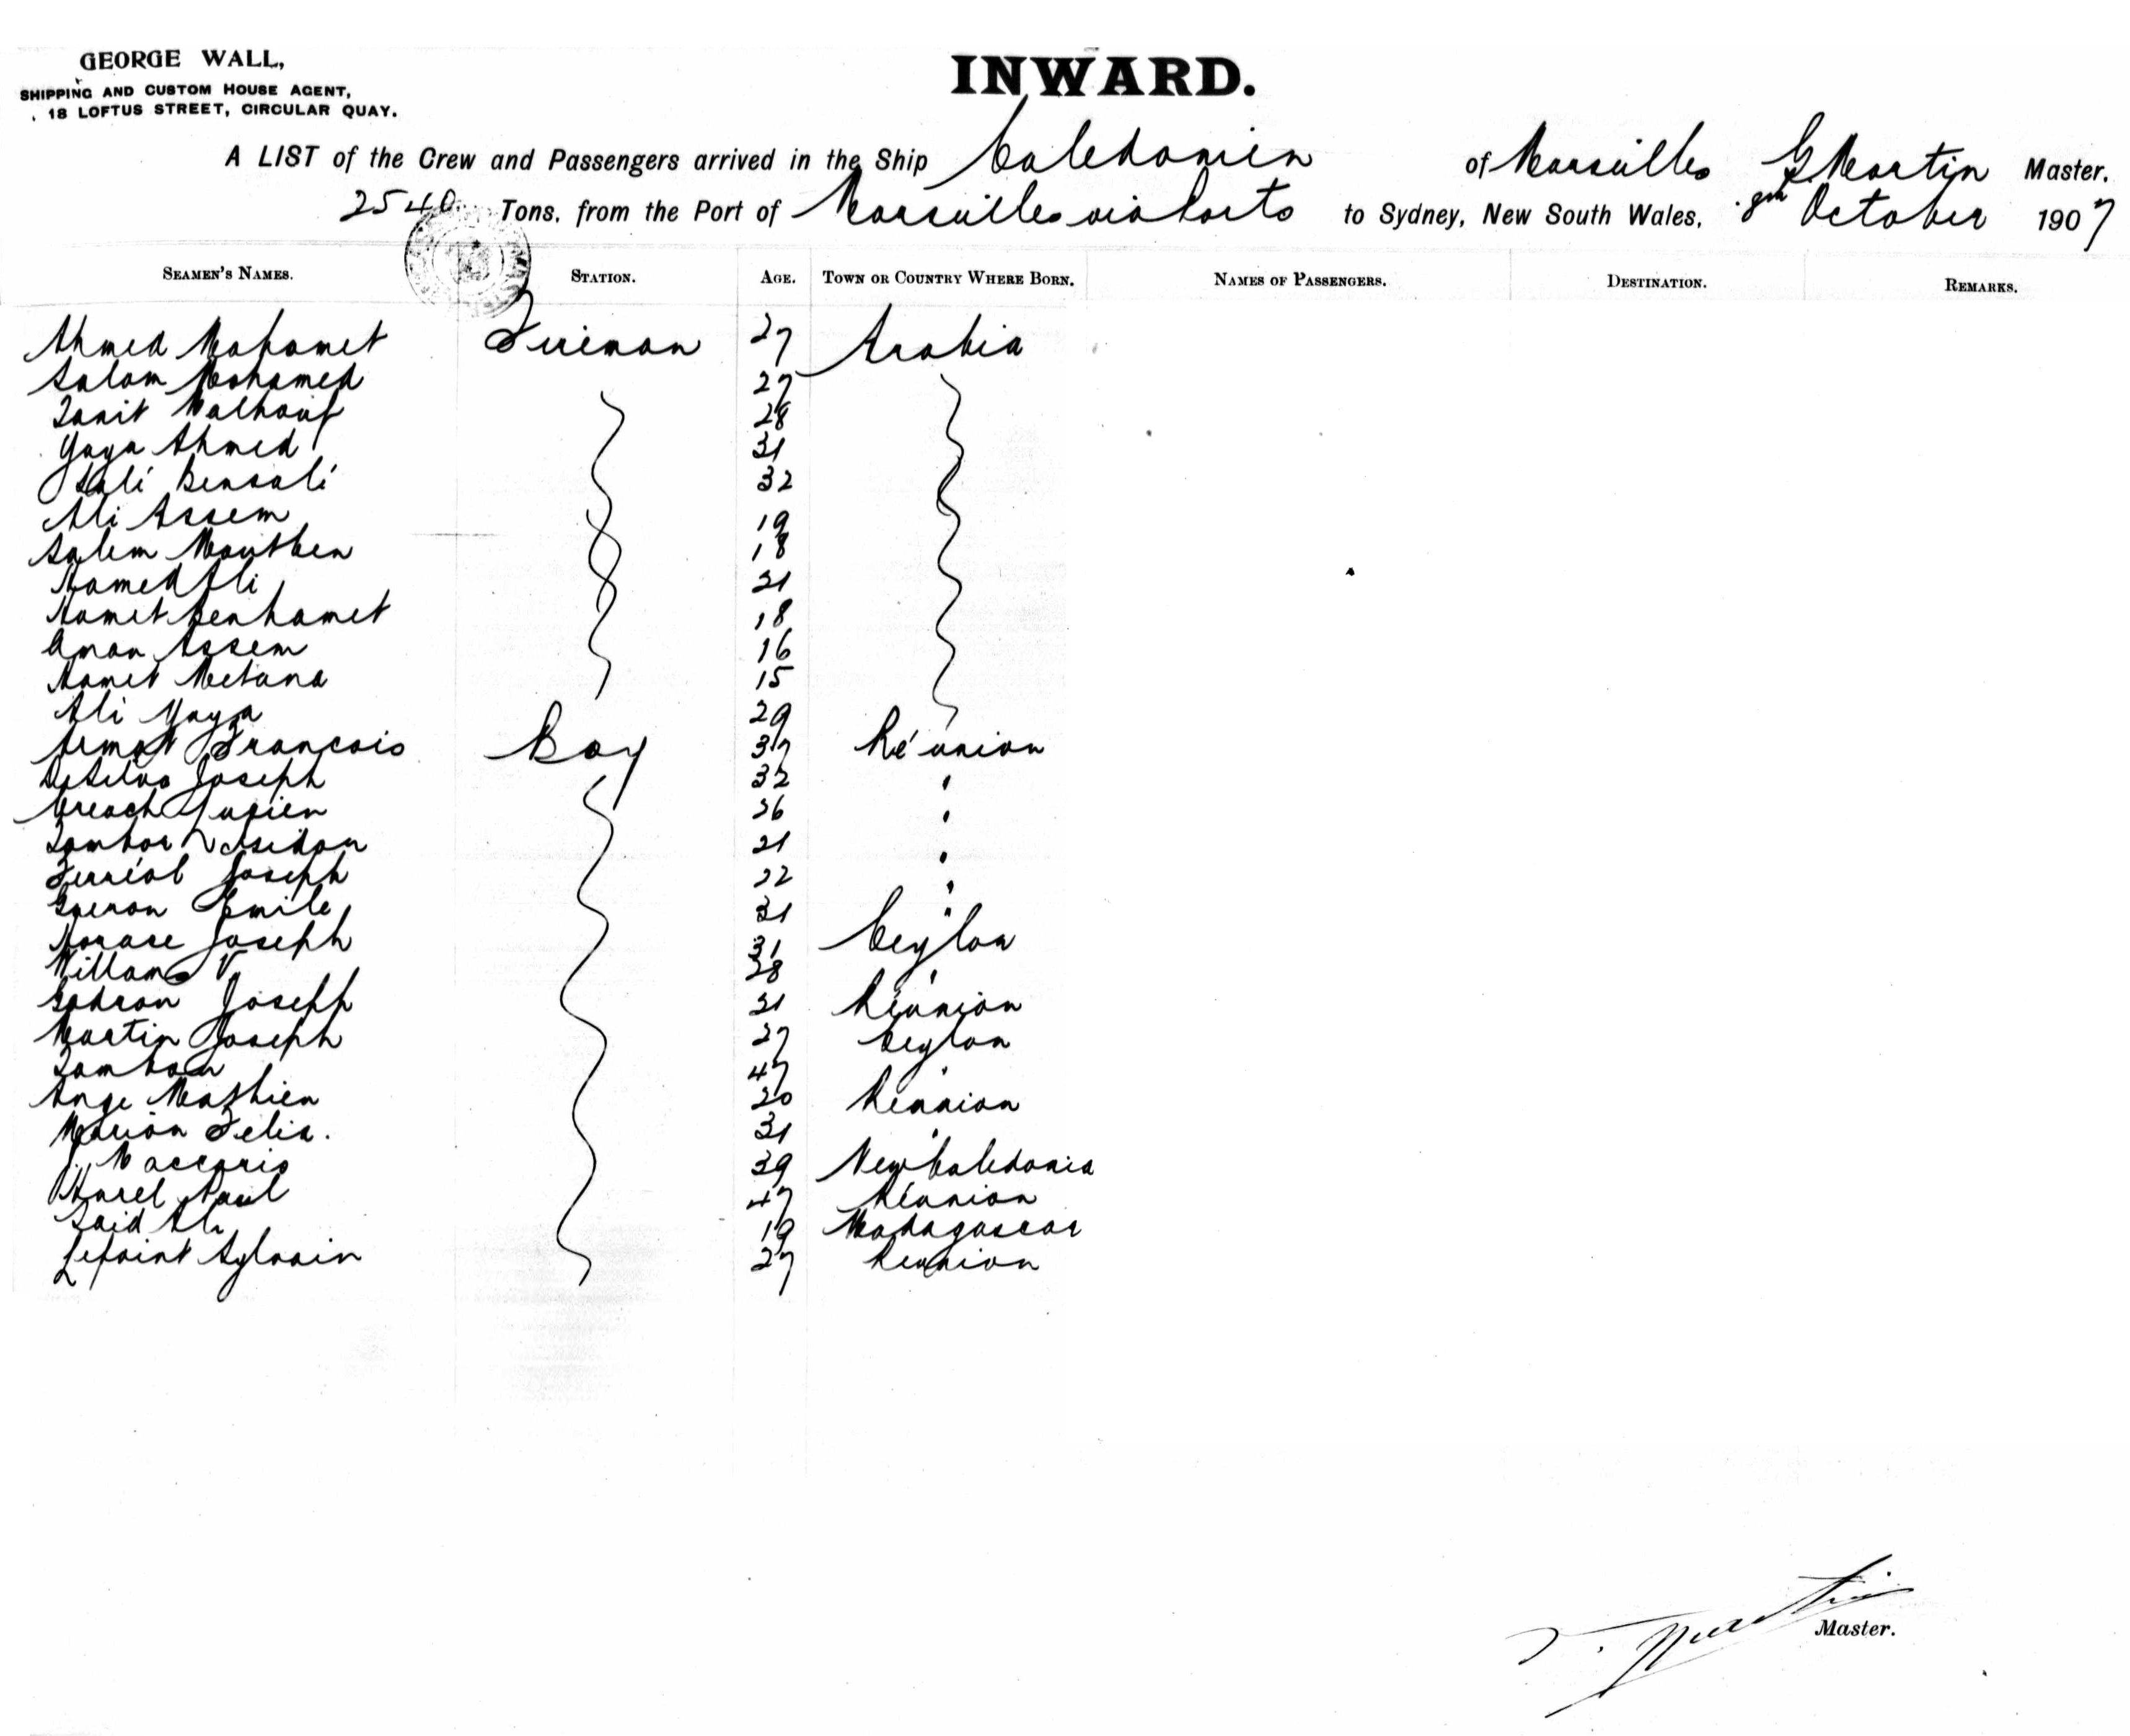 GEORGE WALL,
SHIPPING AND CUSTOM HOUSE AGENT,
18 LOFTUS STREET, CIRCULAR QUAY.
INWARD.
A LIST of the Crew and Passengers arrived in the Ship Caledonien of Marseilles G Martin Master.
2540 Tons, from the Port of Marseilles via Ports to Sydney, New South Wales, 8th October 1907
SEAMEN'S NAMES. STATION. AGE. TOWN OR COUNTRY WHERE BORN. NAMES OF PASSENGERS. DESTINATION. REMARKS.
Ahmed Mahomet Fireman 27 Arabia
Salam Mohamed 27
28
Yaya Ahmed 31
Sali Bensali 32
Ali Assem 19
Salem 18
Hamed Ali 21
Hamet Benhamet 18
Aman Assem 16
Hamet 15
Ali Yaya 29
François Boy 37 Réunion
Joseph 32 "
26 "
21 "
Joseph 22 "
Emile 31 "
Horace Joseph 31 Ceylon
V 28 "
Joseph 21 Réunion
Martin Joseph 27 Ceylon
47 "
Ange Mathieu 20 Réunion
31 "
39 New Caledonia
Harel Paul 47 Réunion
Said Ali 19 Madagascar
Lepoint Sylvain 27 Reunion
Master.